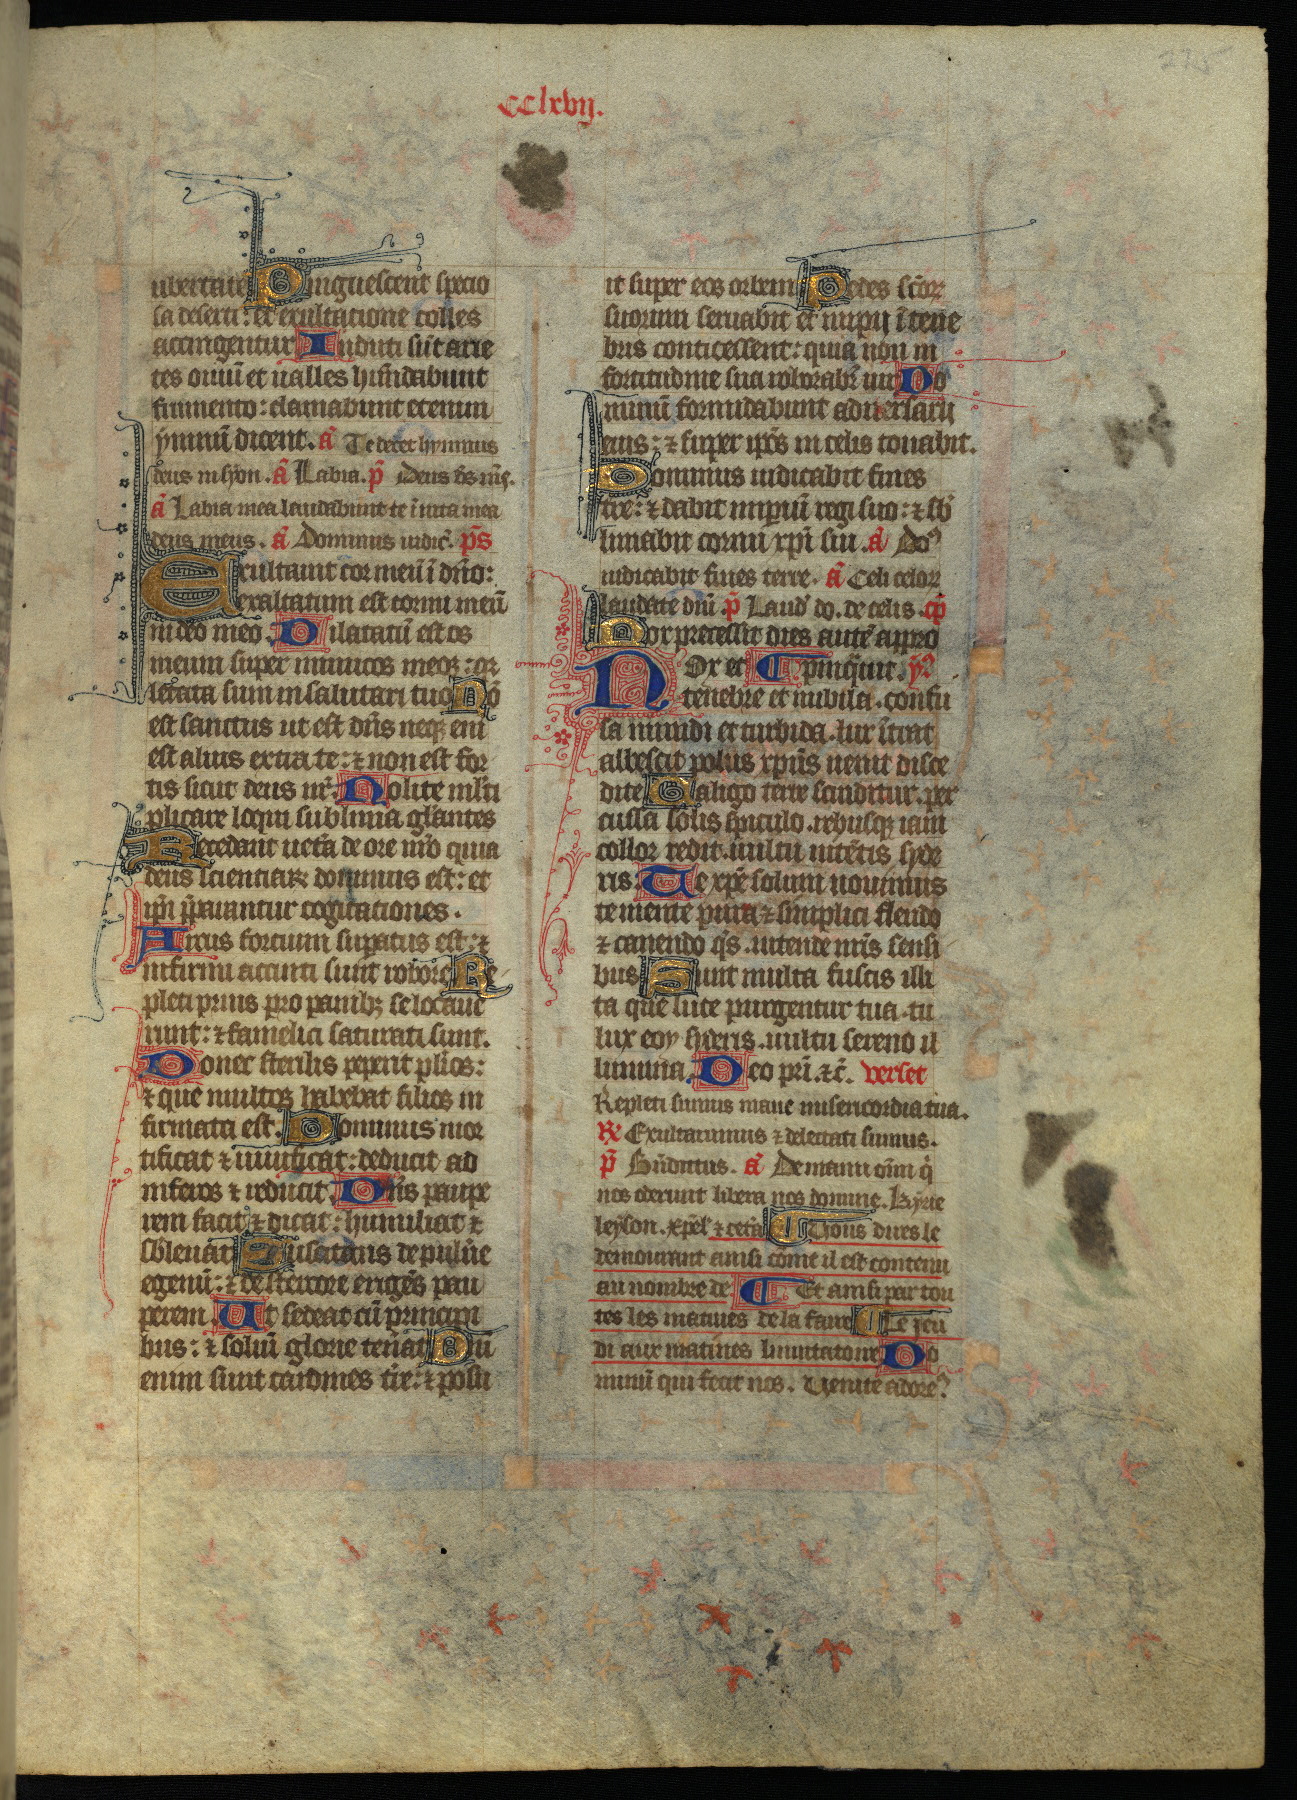 CClxvij.
ubertate Pinguescent specio
sa deserti: et exultatione colles
accingentur Induti sūt arie
tes ouiū et ualles habūdabunt
frumento: clamabunt etenim
ymnū dicent. ā Te decet hymnus
deus in syon. ā Labia. p̄ Deus d̄s m̄s.
ā Labia mea laudabunt te ī uita mea
deus meus. ā Dominus iudic̄. p̄s
Exultauit cor meū ī dn̄o:
exaltatum est cornu meū
in deo meo Dilatatū est os
meum super inimicos meos: qr
letata sum in salutari tuo Nō
est sanctus ut est dn̄s neqꝫ eni
est alius extra te: ⁊ non est for
tis sicut deus nr̄ Nolite ml̄ti
plicare loqui sublimia gl̄antes
Recedant uet̄a de ore ur̄o quia
deus scientiaꝝ dominus est: et
ip̄i p̄parantur cogitationes.
Arcus fortium sup̄atus est: ⁊
infirmi accinti sunt robore Re
pleti prius pro panibꝫ se locaue
runt: ⁊ famelici saturati sunt.
Donec sterilis peperit pl̄ios:
⁊ que multos habebat filios in
firmata est. Dominus mor
tificat ⁊ uiuificat: deducit ad
inferos ⁊ reducit. Dn̄s paupe
rem facit ⁊ ditat: humiliat ⁊
sb̄leuat Suscitans de puluīe
egenū: ⁊ de stercore erigēs pau
perem. Ut sedeat cū principi
bus: ⁊ soliū glorie teneat Dn̄i
enim sunt cardines tr̄e: ⁊ posu
it super eos orbem Pedes sc̄oꝝ
suorum seruabit et impij ī tene
bris conticescent: quia non in
fortitudine sua roborabr̄ uir Do
minū formidabunt aduersarij
eius: ⁊ super ip̄os in celis tonabit.
Dominus iudicabit fines
tr̄e: ⁊ dabit imp̄iū regi suo: ⁊ sb̄
limabit cornu xp̄i sui. ā Do?
iudicabit fines terre. ā Celi celoꝝ
laudate dm̄. p̄ Laud' do. de celis. cp̄
Nox precessit dies autē appro
pinq̄uit. y?
Nox et
tenebre et nubila. confu
sa mundi et turbida. lux ītrat
albescit polus xp̄us uenit disce
dite Caligo terre scinditur. per
cussa solis spiculo. rebusqꝫ iam
color redit. uultu nitētis syde
ris. Te xp̄e solum nouimus
te mente pura ⁊ simplici flendo
⁊ canendo q̄s. intende nr̄is sensi
bus Sunt multa fuscis illi
ta que luce purgentur tua. tu
lux eoy syderis. uultu sereno il
lumina Deo pr̄i. ⁊c̄. verset
Repleti sumus mane misericordia tua.
℟ Exultauimus ⁊ delectati sumus.
p̄ Bn̄dictus. ā De manu om̄i q̄
nos oderunt libera nos domine. Kyrie
leyson. xp̄el' ⁊ cetā Tous dires le
demourant ainsi come il est contenu
au nombre de Et ainsi par tou
tes les matines de la faire Le jeu
di aux matines Inuitatoire Do
minū qui fecit nos. Uenite adore?